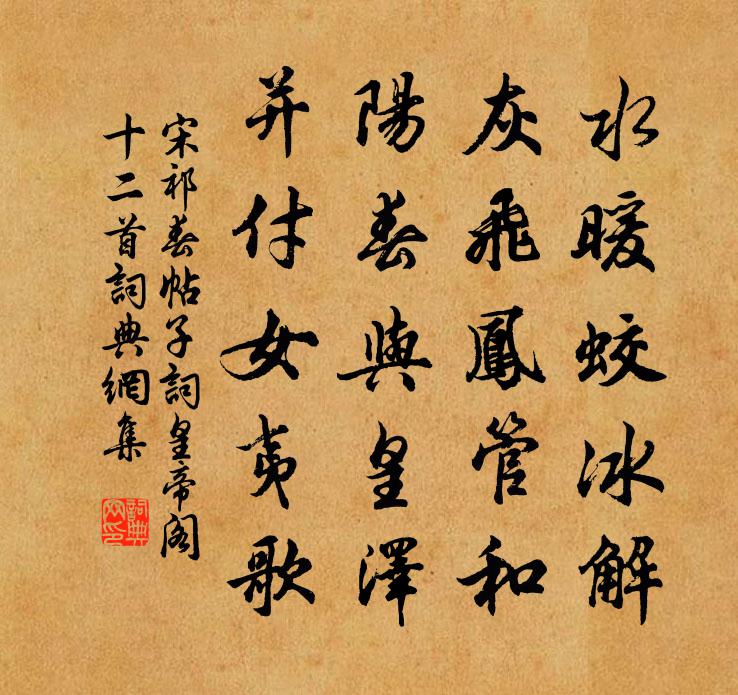 水暖蛟冰解
灰飛鳳管和
陽春與皇澤
并付女夷歌
宋祁春帖子詞皇帝閣
十二首詞典網集
詞典
网印